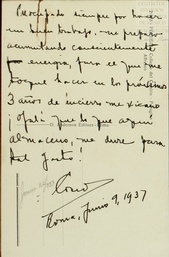 Preocupado siempre por hacer
un buen trabajo, me preparo
acumulando conscientemente
energia, para el que me
toque hacer en los próximos
3 años de encierro me
¡Ojalá que lo que aquí
almaceno, me dure para
tal
Roma, Junio 9, 1937